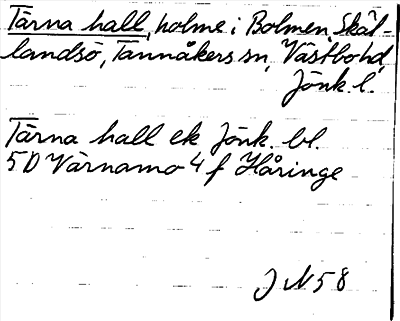 Tärna hall, holme i Bolmen, Skäl-
landsö, Tannåkers sn, Västbo hd,
Jönk. l.
Tärna hall ek Jönk. bl.
5D Värnamo 4 f Håringe
J N 58